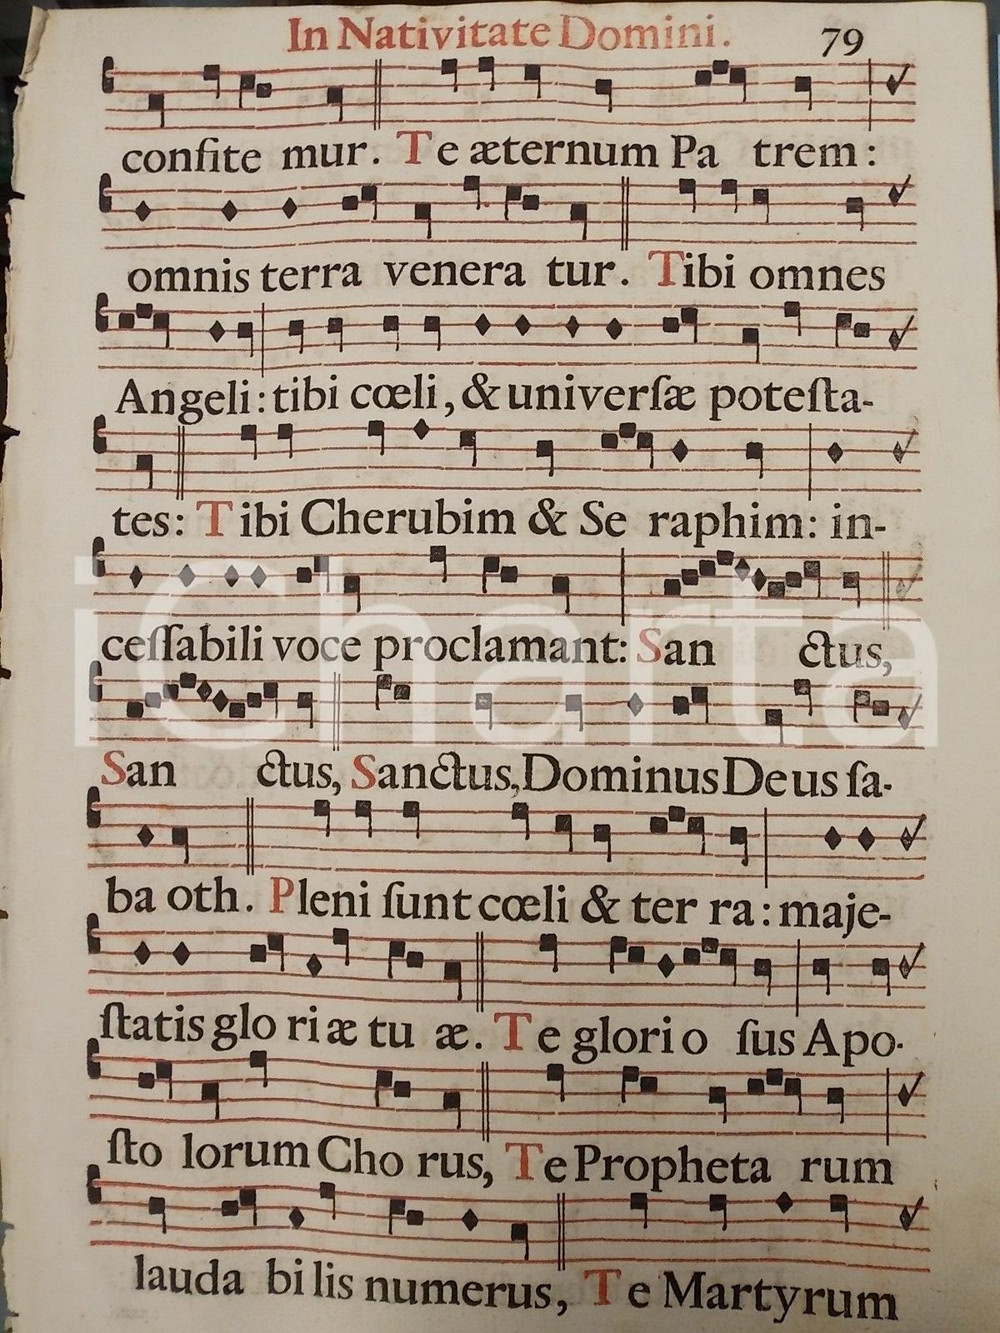 In Nativitate Domini. 79
confite mur. Te æternum Pa trem:
omnis terra venera tur. Tibi omnes
Angeli: tibi cœli, & univerſæ poteſta-
tes: Tibi Cherubim & Se raphim: in-
ceſſabili voce proclamant: San ctus,
San ctus, Sanctus, Dominus Deus ſa-
ba oth. Pleni ſunt cœli & ter ra: maje-
ſtatis glo ri æ tu æ. Te glori o ſus Apo-
ſto lorum Cho rus, Te Propheta rum
lauda bi lis numerus, Te Martyrum
iCharta